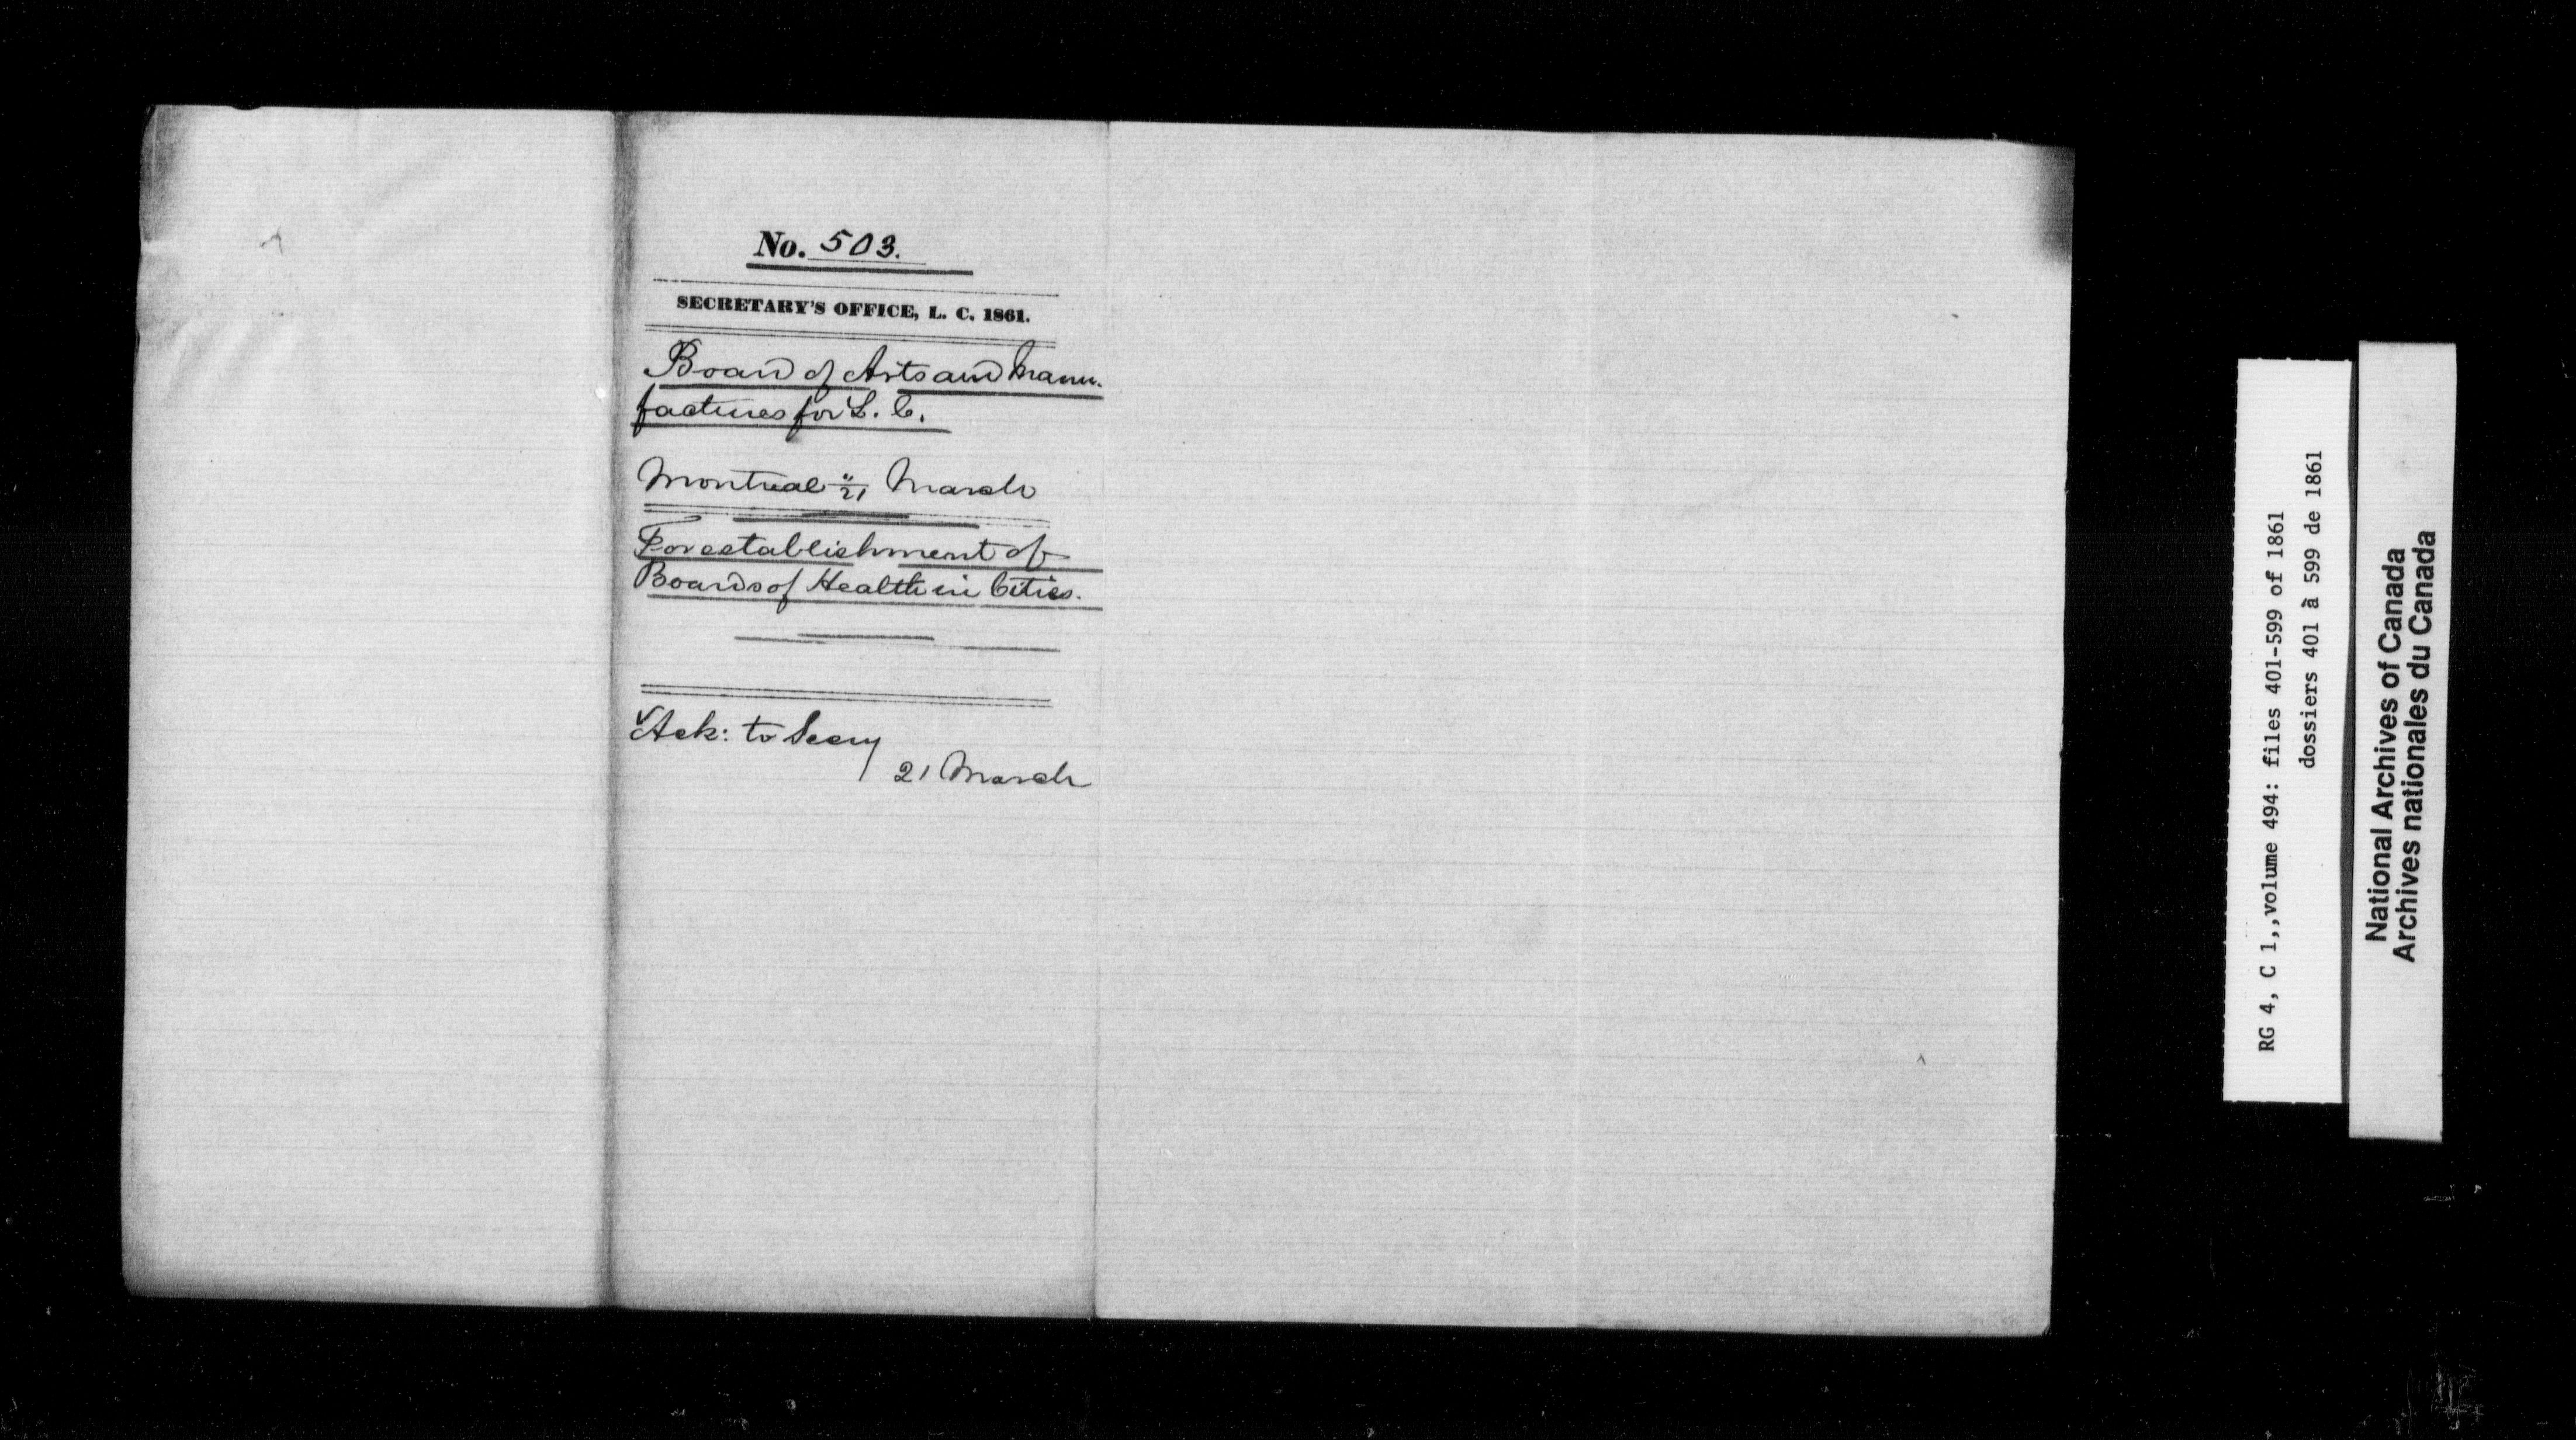 No. 503.
SECRETARY'S OFFICE, L. C. 1861.
Board of Arts and Manu-
factures for L. C.
Montreal 21 March
For establishment of
Boards of Health in Cities.
Ack: to Secy
21 March
RG 4, C 1,,volume 494: files 401-599 of 1861
dossiers 401 à 599 de 1861
National Archives of Canada
Archives nationales du Canada